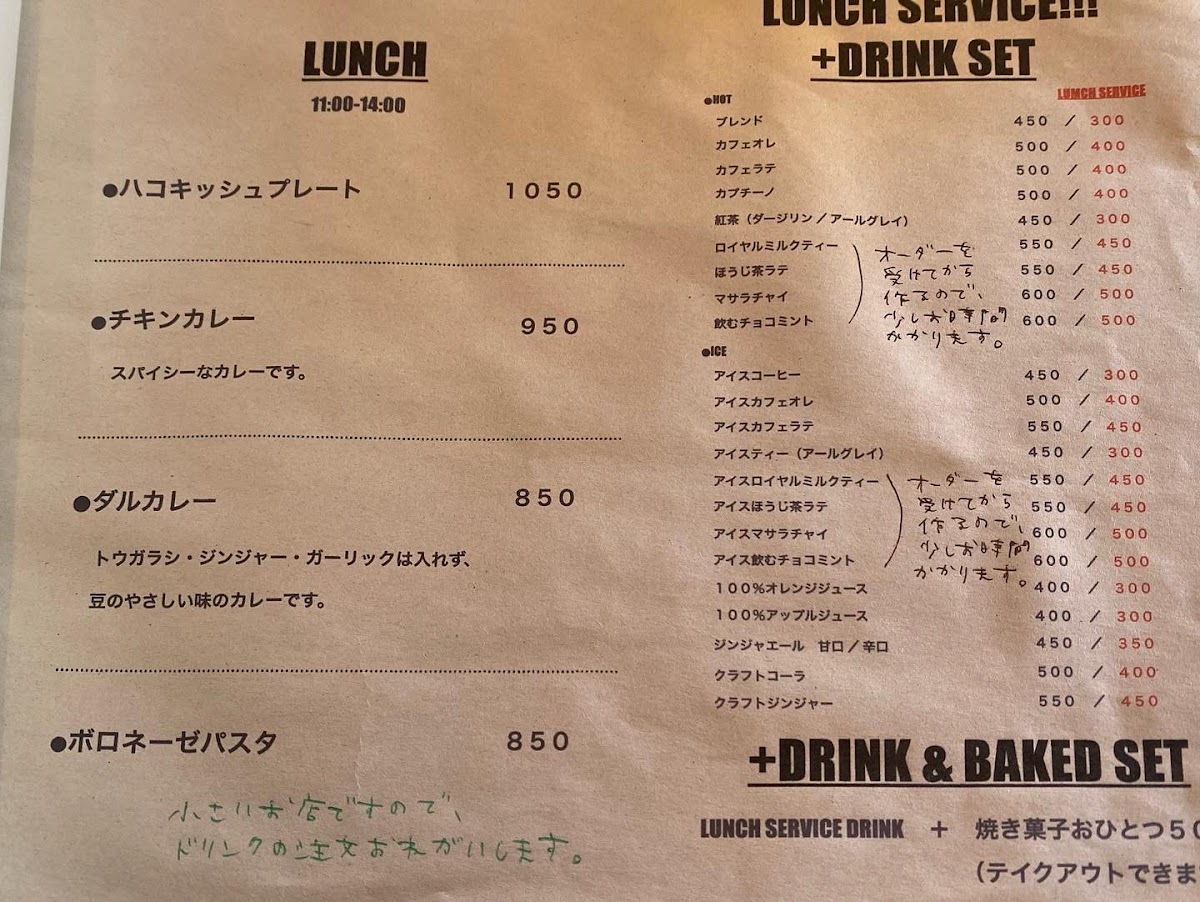 LUNCH
11:00-14:00
●ハコキッシュプレート 1050
●チキンカレー 950
スパイシーなカレーです。
●ダルカレー 850
トウガラシ・ジンジャー・ガーリックは入れず、
豆のやさしい味のカレーです。
●ボロネーゼパスタ 850
小さいお店ですので、
ドリンクの注文おねがいします。
LUNCH SERVICE!!!
+DRINK SET
LUMCH SERVICE
●HOT
ブレンド 450 / 300
カフェオレ 500 / 400
カフェラテ 500 / 400
カプチーノ 500 / 400
紅茶（ダージリン／アールグレイ） 450 / 300
ロイヤルミルクティー 550 / 450
ほうじ茶ラテ 550 / 450
マサラチャイ 600 / 500
飲むチョコミント 600 / 500
オーダーを
受けてから
作るので、
少しお時間
かかります。
●ICE
アイスコーヒー 450 / 300
アイスカフェオレ 500 / 400
アイスカフェラテ 550 / 450
アイスティー（アールグレイ） 450 / 300
アイスロイヤルミルクティー 550 / 450
アイスほうじ茶ラテ 550 / 450
アイスマサラチャイ 600 / 500
アイス飲むチョコミント 600 / 500
オーダーを
受けてから
作るので、
少しお時間
かかります。
100％オレンジジュース 400 / 300
100％アップルジュース 400 / 300
ジンジャエール 甘口／辛口 450 / 350
クラフトコーラ 500 / 400
クラフトジンジャー 550 / 450
+DRINK & BAKED SET
LUNCH SERVICE DRINK + 焼き菓子おひとつ50
（テイクアウトできま